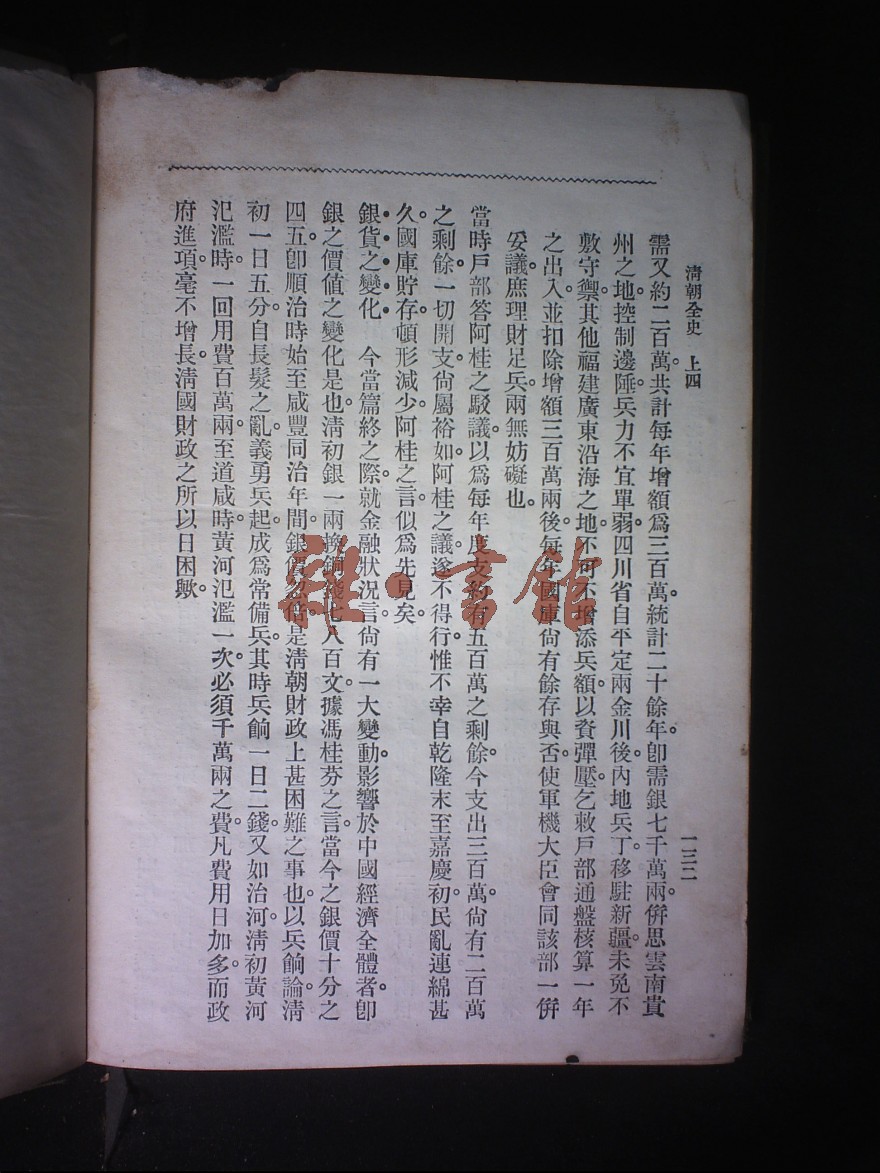 清朝全史 上四
一三二
需又約二百萬。共計每年增額爲三百萬。統計二十餘年。卽需銀七千萬兩。併思雲南貴
州之地。控制邊陲。兵力不宜單弱。四川省自平定兩金川後。內地兵丁。移駐新疆。未免不
敷守禦。其他福建廣東沿海之地。不可不增添兵額。以資彈壓。乞敕戶部通盤核算一年
之出入。並扣除增額三百萬兩後。每年國庫尙有餘存與否。使軍機大臣會同該部一併
妥議。庶理財足兵兩無妨礙也。
當時戶部答阿桂之駁議。以爲每年度支約有五百萬之剩餘。今支出三百萬。尙有二百萬
之剩餘。一切開支。尙屬裕如。阿桂之議。遂不得行。惟不幸自乾隆末至嘉慶初。民亂連綿甚
久。國庫貯存。頓形減少。阿桂之言。似爲先見矣。
銀貨之變化 今當篇終之際。就金融狀況言。尙有一大變動。影響於中國經濟全體者。卽
銀之價值之變化是也。淸初銀一兩換銅錢七八百文。據馮桂芬之言。當今之銀價十分之
四五。卽順治時始至咸豐同治年間。銀價忽倍。是淸朝財政上甚困難之事也。以兵餉論。淸
初一日五分。自長髮之亂。義勇兵起。成爲常備兵。其時兵餉一日二錢。又如治河。淸初黃河
氾濫時。一回用費百萬兩。至道咸時。黃河氾濫一次。必須千萬兩之費。凡費用日加多。而政
府進項。毫不增長。淸國財政之所以日困歟。
雜·書館